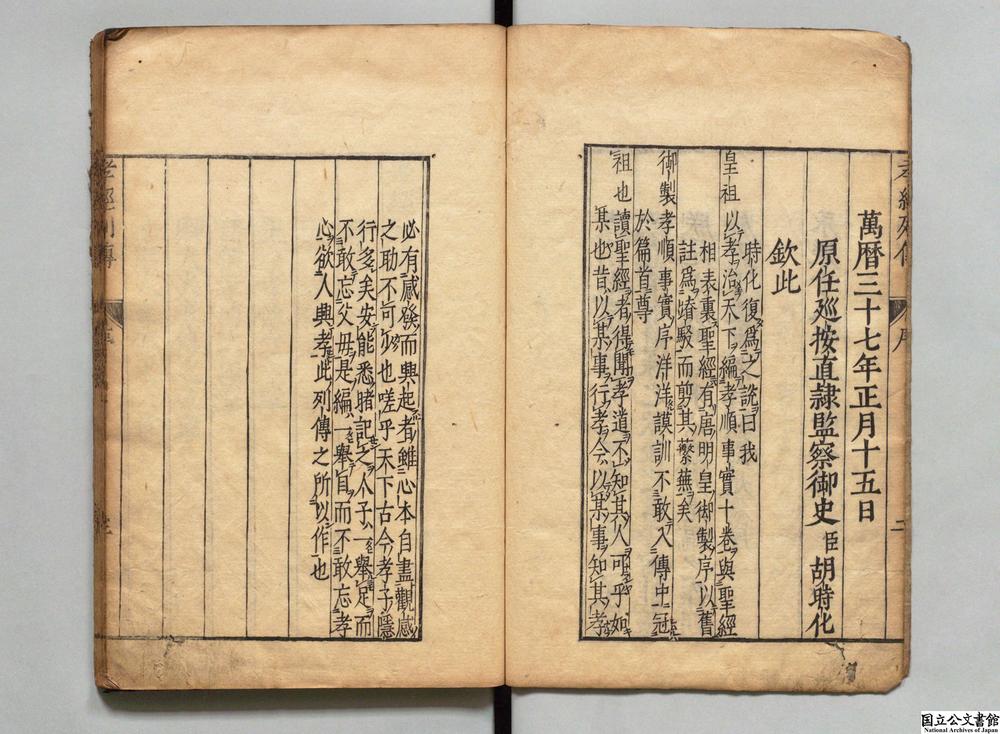 萬曆三十七年正月十五日
原任廵按直隷監察御史臣胡時化
欽此
時化復爲之說曰我
皇祖以孝治天下編孝順事實十卷與聖經
相表裏聖經有唐明皇御製序以舊
註爲踳駁而剪其蘩蕪矣
御製孝順事實序洋洋謨訓不敢入傳中冠
於篇首尊
祖也讀聖經者得聞孝道不知其人可乎如
某也昔以某事行孝今以某事知其孝
必有感發而興起者雖心本自盡觀感
之助不可少也嗟乎天下古今孝子隱
行多矣安能悉睹記之人子一舉足而
不敢忘父母是編一舉旨而不敢忘孝
心欲人興孝此列傳之所以作也
孝經列傳
序
二
孝經列傳
国立公文書館
National Archives of Japan